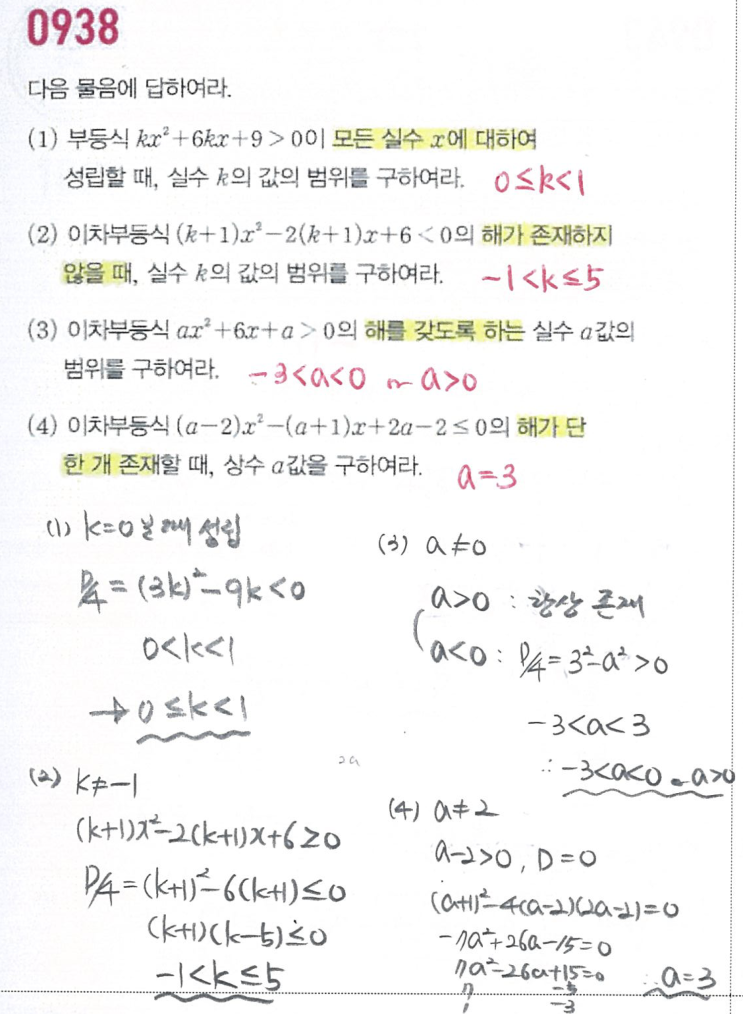 0938
다음 물음에 답하여라.
(1) 부등식 kx²+6kx+9>0이 모든 실수 x에 대하여
성립할 때, 실수 k의 값의 범위를 구하여라. 0≤k<1
(2) 이차부등식 (k+1)x²-2(k+1)x+6<0의 해가 존재하지
않을 때, 실수 k의 값의 범위를 구하여라. -1<k≤5
(3) 이차부등식 ax²+6x+a>0의 해를 갖도록 하는 실수 a값의
범위를 구하여라. -3<a<0 or a>0
(4) 이차부등식 (a-2)x²-(a+1)x+2a-2≤0의 해가 단
한 개 존재할 때, 상수 a값을 구하여라. a=3
(1) k=0일 때 성립
D/4=(3k)²-9k<0
0<k<1
→ 0≤k<1
(2) k≠-1
(k+1)x²-2(k+1)x+6≥0
D/4=(k+1)²-6(k+1)≤0
(k+1)(k-5)≤0
-1<k≤5
(3) a≠0
a>0 : 항상 존재
a<0 : D/4=3²-a²>0
-3<a<3
∴ -3<a<0 or a>0
2a
(4) a≠2
a-2>0, D=0
(a+1)²-4(a-2)(2a-2)=0
-7a²+26a-15=0
7a²-26a+15=0
7 -5
1 -3
∴ a=3